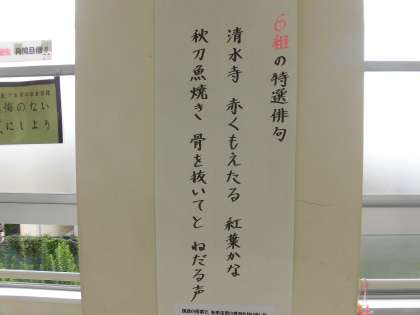 6組の特選俳句
清水寺 赤くもえたる 紅葉かな
秋刀魚焼き 骨を抜いてと ねだる声
悔のない
にしよう